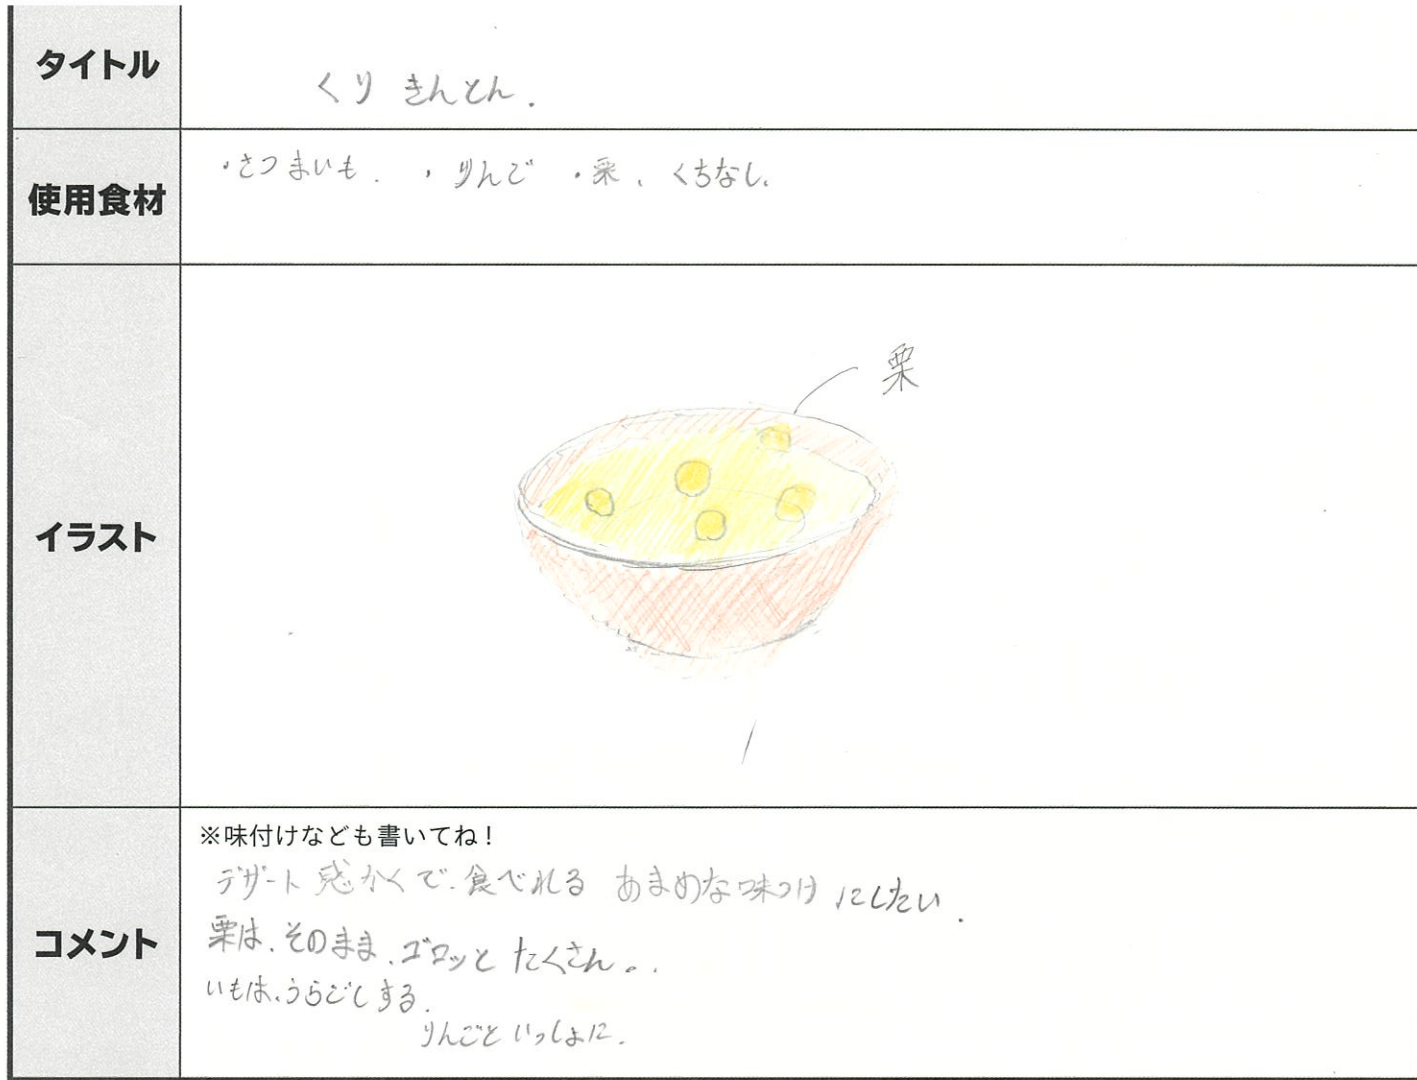 タイトル
くり きんとん.
使用食材
・さつまいも. ・りんご ・栗、くちなし、
栗
イラスト
※味付けなども書いてね!
デザート感かくで.食べれる あまめな味つけにしたい.
コメント
栗は、そのまま、ゴロッと たくさん。.
いもは、うらごしする.
りんごと いっしょに.